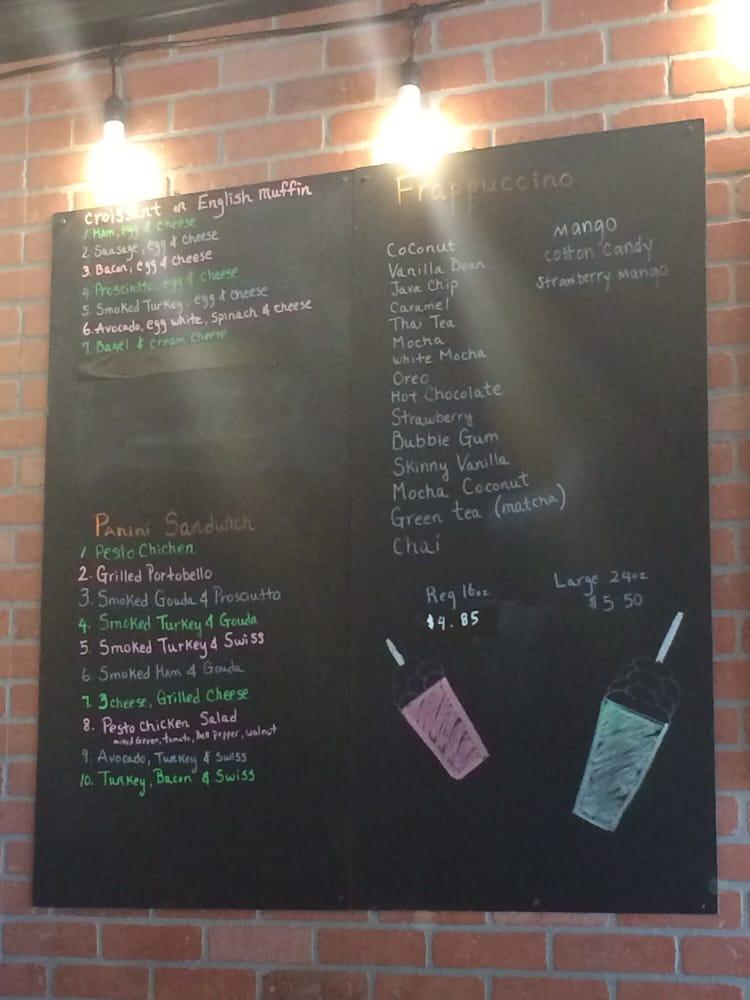 Croissant or English Muffin
1. Ham, egg & cheese
2. Sausage, egg & cheese
3. Bacon, egg & cheese
4. Prosciutto, egg & cheese
5. Smoked Turkey, egg & cheese
6. Avocado, egg white, Spinach & cheese
7. Bagel & cream cheese
Panini Sandwich
1. Pesto Chicken
2. Grilled Portobello
3. Smoked Gouda & Prosciutto
4. Smoked Turkey & Gouda
5. Smoked Turkey & Swiss
6. Smoked Ham & Gouda
7. 3 cheese, Grilled Cheese
8. Pesto Chicken Salad
mixed Green, tomato, Bell pepper, walnut
9. Avocado, Turkey & Swiss
10. Turkey, Bacon & Swiss
Frappuccino
Coconut
Vanilla Bean
Java Chip
Caramel
Thai Tea
Mocha
White Mocha
Oreo
Hot Chocolate
Strawberry
Bubble Gum
Skinny Vanilla
Mocha Coconut
Green tea (matcha)
Chai
Mango
Cotton Candy
Strawberry Mango
Reg 16oz
$4.85
Large 24oz
$5.50